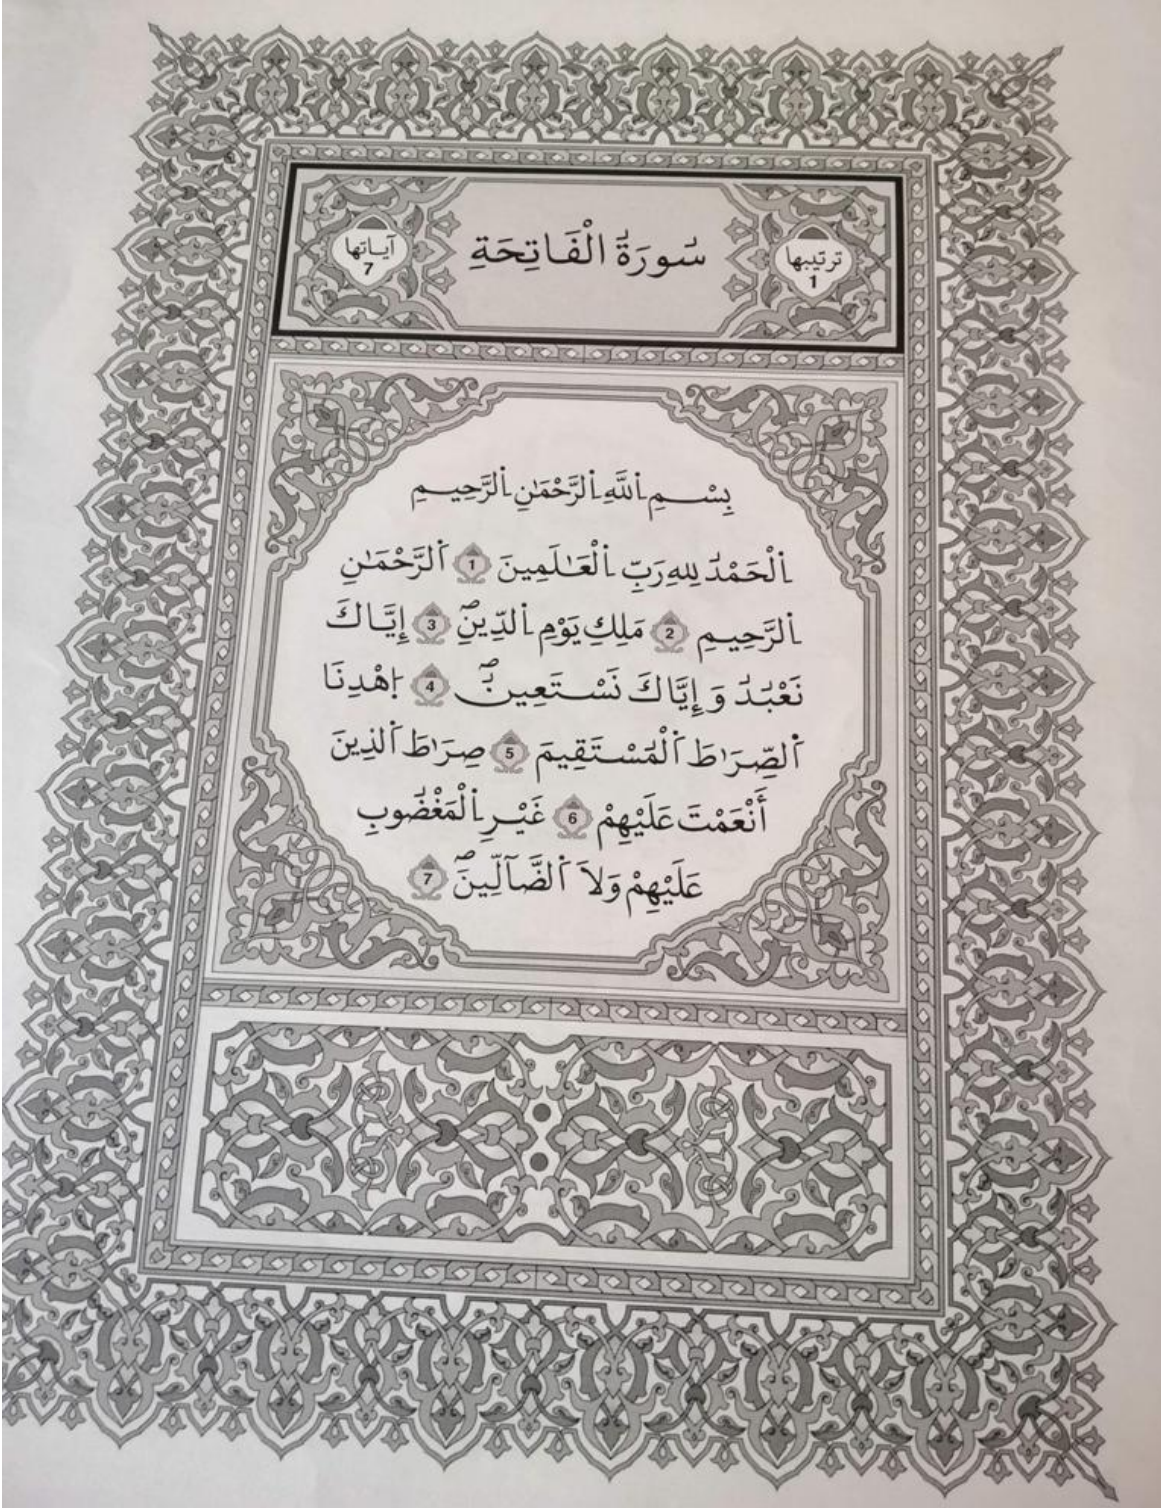 ترتيبها
1
سُورَةُ الْفَاتِحَةِ
آياتها
7
بِسْمِ اِ۬للَّهِ اِ۬لرَّحْمَٰنِ اِ۬لرَّحِيمِ
اِ۬لْحَمْدُ لِلهِ رَبِّ اِ۬لْعَٰلَمِينَ 1 اَ۬لرَّحْمَٰنِ
اِ۬لرَّحِيمِ 2 مَلِكِ يَوْمِ اِ۬لدِّينِۖ 3 إِيَّاكَ
نَعْبُدُ وَإِيَّاكَ نَسْتَعِينُۖ 4 اِ۪هْدِنَا
اَ۬لصِّرَٰطَ اَ۬لْمُسْتَقِيمَ 5 صِرَٰطَ اَ۬لذِينَ
أَنْعَمْتَ عَلَيْهِمْ 6 غَيْرِ اِ۬لْمَغْضُوبِ
عَلَيْهِمْ وَلَا اَ۬لضَّآلِّينَۖ 7